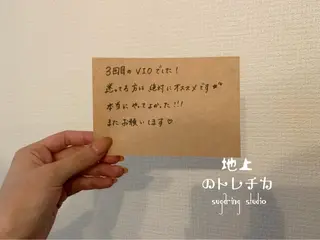 3回目のVIOでした!
迷ってる方は絶対にオススメです
本当にやってよかった!!!
またお願いします♡
地上
のトレチカ
sugaring studio